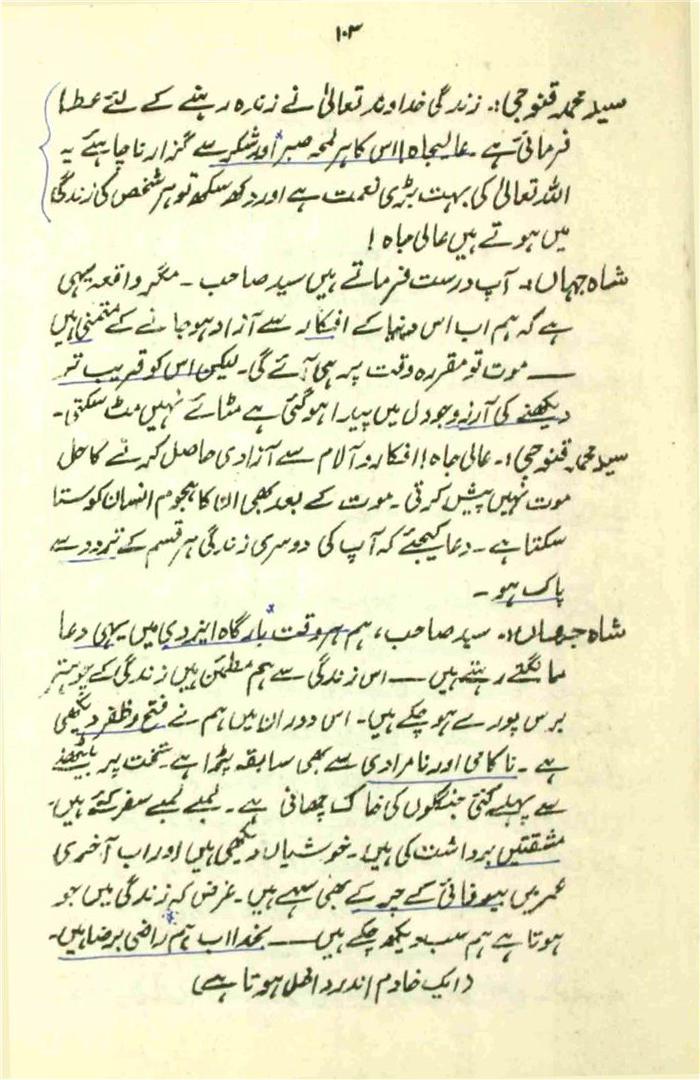 ۱۰۳
سید محمد قنوجی:۔ زندگی خداوند تعالیٰ نے زندہ رہنے کے لئے عطا
فرمائی ہے ۔ عالیجاہ! اس کا ہر لمحہ صبر اور شکر سے گزارنا چاہئے یہ
اللہ تعالیٰ کی بہت بڑی نعمت ہے اور دکھ سکھ تو ہر شخص کی زندگی
میں ہوتے ہیں عالی جاہ !
شاہ جہاں:۔ آپ درست فرماتے ہیں سید صاحب ۔ مگر واقعہ یہی
ہے کہ ہم اب اس دنیا کے افکار سے آزاد ہو جانے کے متمنی ہیں
— موت تو مقررہ وقت پر ہی آئے گی۔ لیکن اس کو قریب تر
دیکھنے کی آرزو جو دل میں پیدا ہو گئی ہے مٹائے نہیں مٹ سکتی۔
سید محمد قنوجی:۔ عالی جاہ! افکار و آلام سے آزادی حاصل کرنے کا حل
موت نہیں پیش کرتی ۔ موت کے بعد بھی ان کا ہجوم انسان کو ستا
سکتا ہے ۔ دعا کیجئے کہ آپ کی دوسری زندگی ہر قسم کے تردد سے
پاک ہو ۔
شاہ جہاں:۔ سید صاحب، ہم ہر وقت بارگاہ ایزدی میں یہی دعا
مانگتے رہتے ہیں — اس زندگی سے ہم مطمئن ہیں زندگی کے چوہتر
برس پورے ہو چکے ہیں۔ اس دوران میں ہم نے فتح و ظفر دیکھی
ہے ۔ ناکامی اور نامرادی سے بھی سابقہ پڑا ہے۔ تخت پر بیٹھنے
سے پہلے کتنی جنگلوں کی خاک چھانی ہے ۔ لمبے لمبے سفر کئے ہیں۔
مشقتیں برداشت کی ہیں۔ خوشیاں دیکھی ہیں اور اب آخری
عمر میں بیوفائی کے چرکے بھی سہے ہیں۔ غرض کہ زندگی میں جو
ہوتا ہے ہم سب دیکھ چکے ہیں — بخدا اب ہم راضی برضا ہیں۔
(ایک خادم اندر داخل ہوتا ہے)